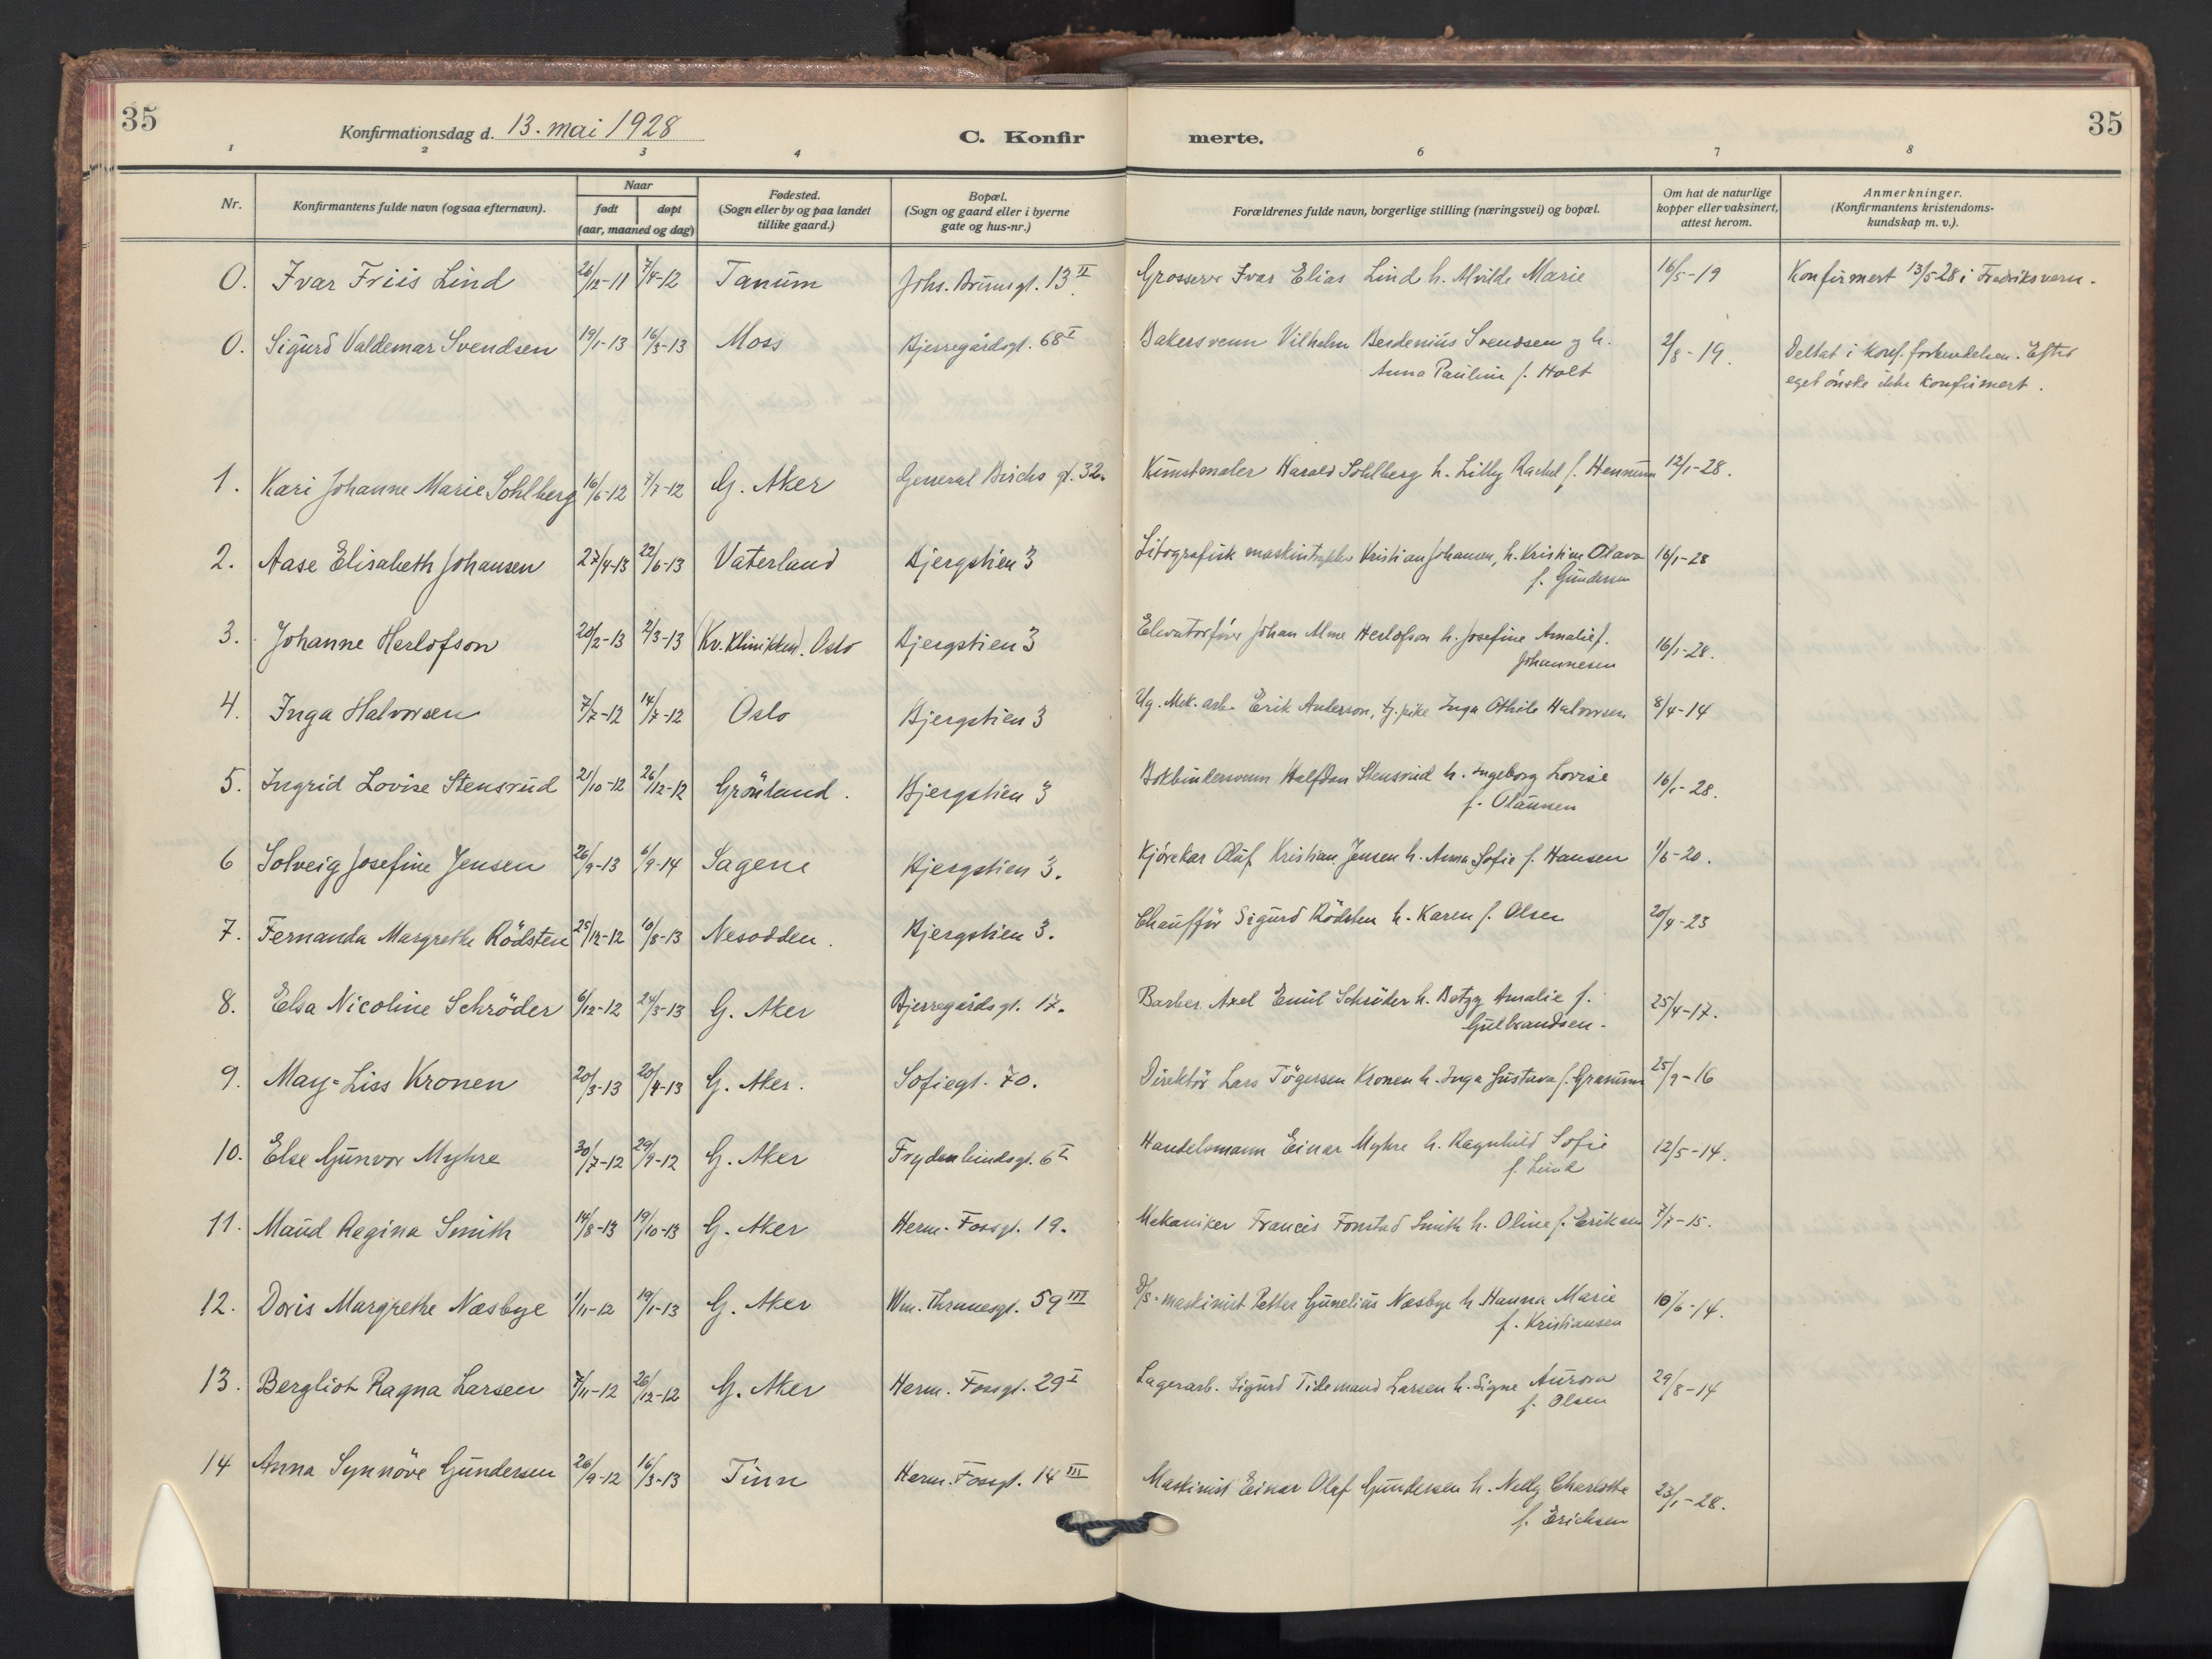 35
Konfirmationsdag d. 13. mai 1928
C. Konfir
merte.
35
1 2 3 4 6 7 8
Nr.
Konfirmantens fulde navn (ogsaa efternavn).
Naar
født døpt
(aar, maaned og dag)
Fødested.
(Sogn eller by og paa landet
tillike gaard.)
Bopæl.
(Sogn og gaard eller i byerne
gate og hus-nr.)
Forældrenes fulde navn, borgerlige stilling (næringsvei) og bopæl.
Om hat de naturlige
kopper eller vaksinert,
attest herom.
Anmerkninger.
(Konfirmantens kristendoms-
kundskap m. v.).
0. Ivar Friis Lind 26/12-11 7/4-12 Tanum Johs. Brunsgt. 13 II Grosserer Ivar Elias Lind h. Alvilde Marie 16/5-19 Konfirmert 13/5-28 i Fredriksvern.
0. Sigurd Valdemar Svendsen 19/1-13 16/3-13 Moss Bjerregårdsgt. 68 I Bakersvenn Vilhelm Berdenius Svendsen og h. 2/8-19. Deltat i konf. forberedelsen. Efter
Anna Pauline f. Holt eget ønske ikke konfirmert.
1. Kari Johanne Marie Sohlberg 16/6-12 7/7-12 G. Aker General Birchs gt. 32. Kunstmaler Harald Sohlberg h. Lilly Rachel f. Hennum 12/1-28.
2. Aase Elisabeth Johansen 27/4-13 22/6-13 Vaterland Bjergstien 3 Litografisk maskintrykker Kristian Johansen, h. Kristine Olava 16/1-28
f. Gundersen
3. Johanne Herlofson 20/2-13 2/3-13 (Kv. klinikken). Oslo Bjergstien 3 Elevatorfører Johan Alme Herlofson h. Josefine Amalie f. 16/1-28.
Johannesen
4. Inga Halvorsen 7/7-12 14/7-12 Oslo Bjergstien 3 Ug. Mek. arb. Erik Anderson, tj. pike Inga Othile Halvorsen 8/4-14
5. Ingrid Lovise Stensrud 21/10-12 26/12-12 Grönland. Bjergstien 3 Bokbindersvenn Halfdan Stensrud h. Ingeborg Lovise 16/1-28.
f. Olaussen
6 Solveig Josefine Jensen 26/9-13 6/9-14 Sagene Bjergstien 3. Kjörekar Oluf Kristian Jensen h. Anna Sofie f. Hansen 1/6-20.
7. Fernanda Margrethe Rödsten 25/12-12 10/8-13 Nesodden. Bjergstien 3. Chauffør Sigurd Rödsten h. Karen f. Olsen 20/4-23
8. Elsa Nicoline Schröder 6/12-12 24/3-13 G. Aker Bjerregårdsgt. 17. Barber Axel Emil Schröder h. Betzy Amalie f. 25/4-17.
Gulbrandsen.
9. May-Liss Kronen 20/3-13 20/4-13 G. Aker. Sofiegt. 70. Direktør Lars Tögersen Kronen h. Inga Gustava f. Granum 25/9-16
10. Else Gunvor Myhre 30/7-12 29/9-12 G. Aker Frydenlundsgt. 6 I Handelsmann Einar Myhre h. Ragnhild Sofie 12/5-14.
f. Lind
11. Maud Regina Smith 14/8-13 19/10-13 G. Aker Herm. Fossgt. 19. Mekaniker Francis Fonstad Smith h. Oline f. Eriksen 7/7-15.
12. Doris Margrethe Næsbye 1/11-12 19/1-13 G. Aker Wm. Thranesgt. 59 III D/S-maskinist Petter Gunelius Næsbye h. Hanna Marie 10/6-14.
f. Kristiansen
13. Bergliot Ragna Larsen 7/11-12 26/12-12 G. Aker Herm. Fossgt. 29 I Lagerarb. Sigurd Tidemand Larsen h. Signe Aurora 29/8-14
f. Olsen
14 Anna Synnöve Gundersen 26/9-12 16/3-13 Tinn Herm. Fossgt. 14 III Maskinist Einar Olaf Gundersen h. Nelly Charlotte 23/1-28.
f. Erichsen